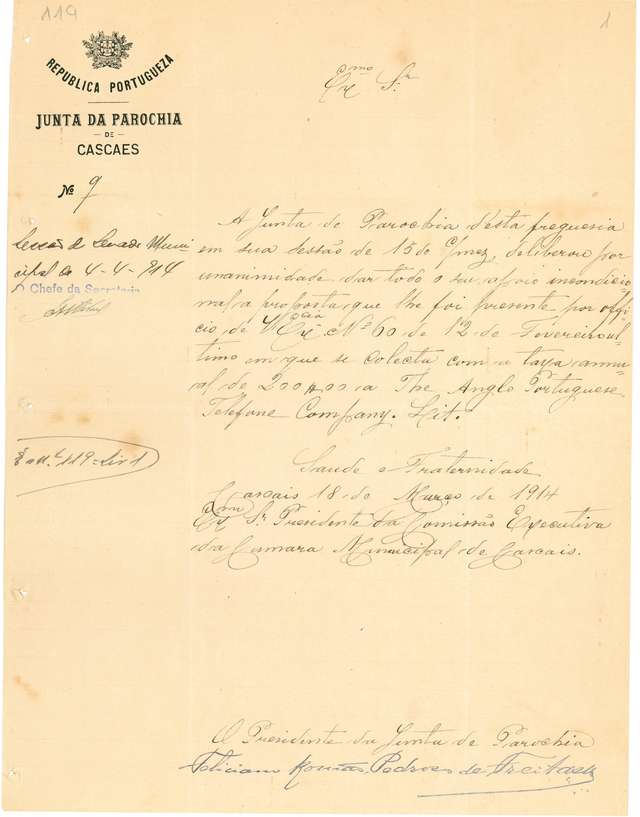 119
1
REPUBLICA PORTUGUEZA
JUNTA DA PAROCHIA
DE
CASCAES
Nº 9
Exmo Sr
Sessão d Senado Muni
cipal de 4-4-914
O Chefe da Secretaria
A Junta de Parochia d'esta freguesia
em sua sessão de 15 do cmez, deliberou por
unanimidade dar todo o seu apoio incondicio
nal, a proposta, que lhe foi presente por offi
cio de V. Excia Nº 60 de 12 de Fevereiro ul-
timo em que se colecta com a taxa annu
al de 200$00 a The Anglo Portuguese
Telefone Company. Lit.
Ent. 119 - Liv 1
Saude e Fraternidade
Cascais 18 de Março de 1914
Exmo Sr Presidente da Comissão Executiva
da Camara Municipal de Cascais.
O Presidente da Junta de Parochia
Feliciano Pedroso de Freitas